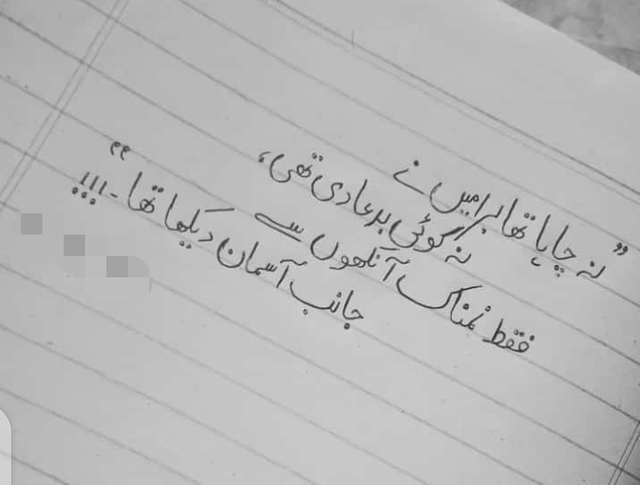 ”نہ چاہا تھا برا میں نے
نہ کوئی بدعا دی تھی،
فقط نمناک آنکھوں سے
جانب آسمان دیکھا تھا۔!!!“